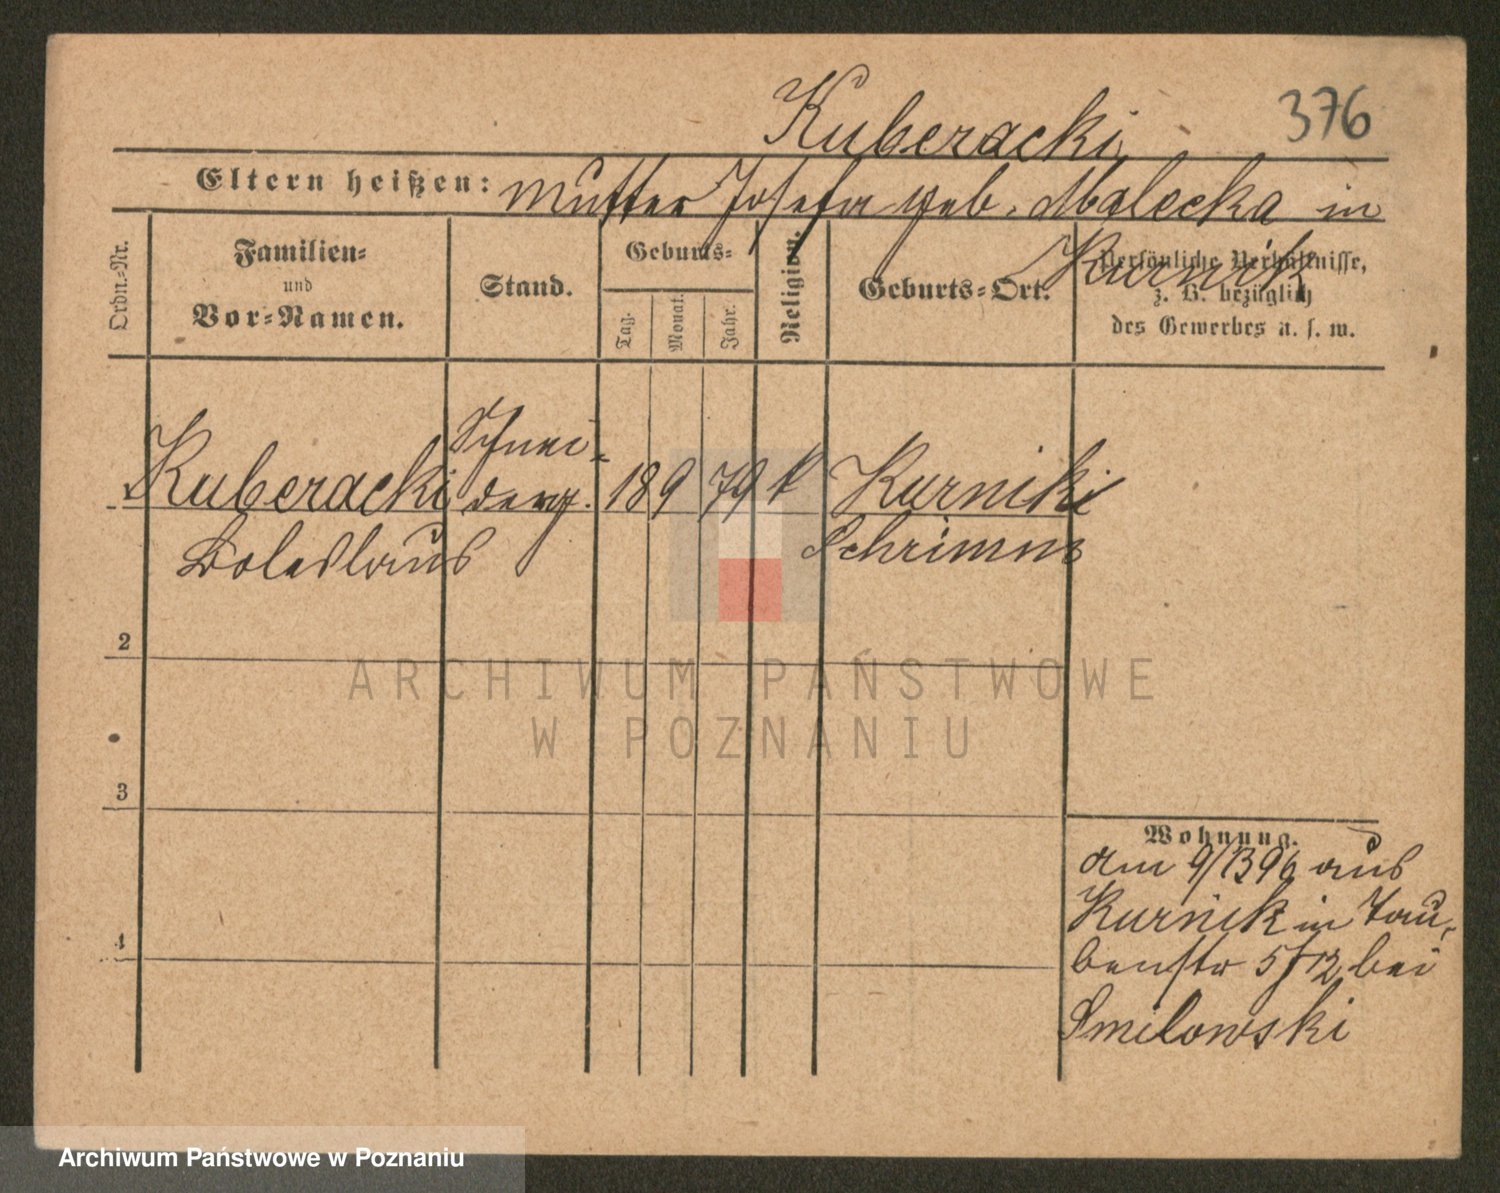 Kuberacki
376
Eltern heißen: Mutter Josefa geb. Malecka in
Kurnik
Ordn.-Nr.
Familien-
und
Vor-Namen.
Stand.
Geburts-
Tag.
Monat.
Jahr.
Religion.
Geburts-Ort.
Persönliche Verhältnisse,
z. B. bezüglich
des Gewerbes u. s. w.
Kuberacki
Boleslaus
Schnei-
derg.
18 9 79 k
Kurnik
Schrimm
2
3
4
Wohnung.
am 9/1396 aus
Kurnik in Tau-
benstr 5 f 12 bei
Smilowski
ARCHIWUM PAŃSTWOWE
W POZNANIU
Archiwum Państwowe w Poznaniu